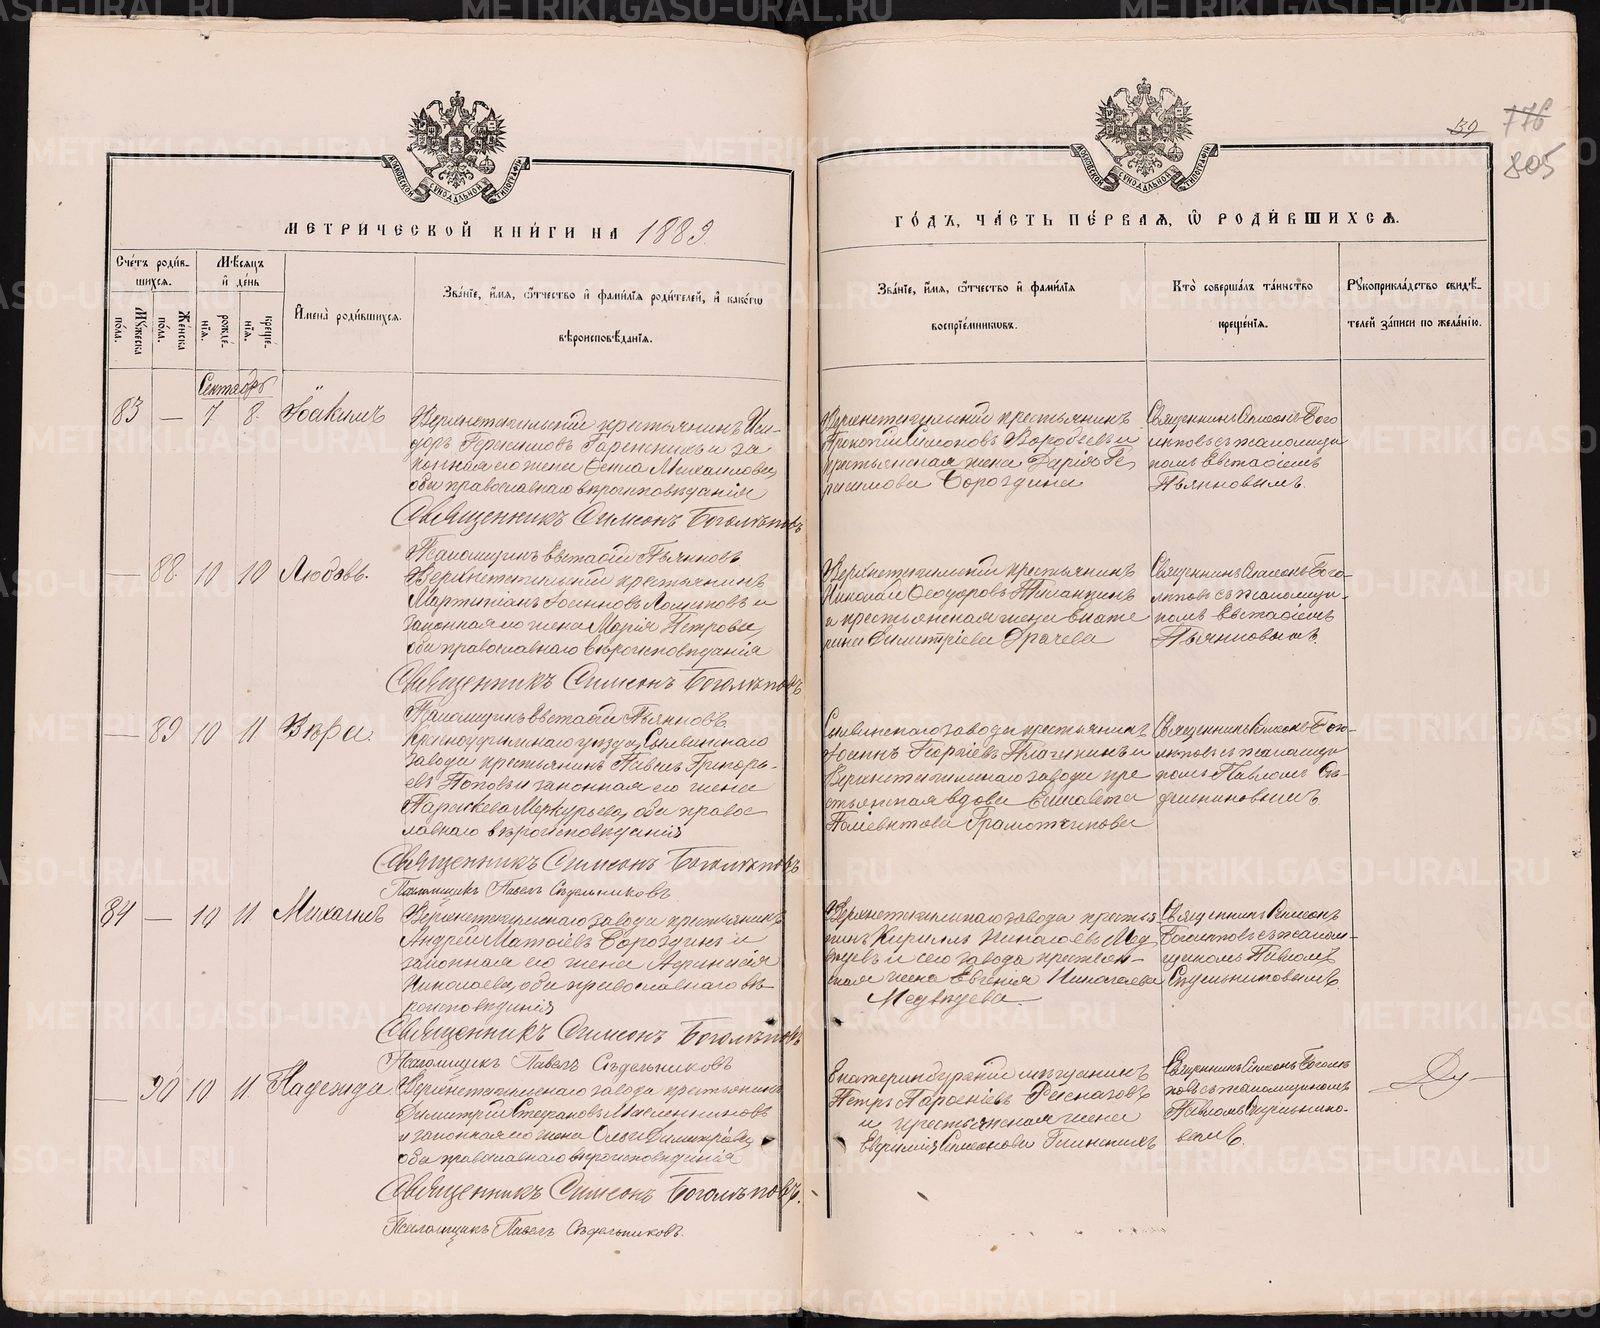 139
776
805
МЕТРИЧЕСКОЙ КНИГИ НА 1889.
ГОДЪ, ЧАСТЬ ПЕРВАЯ, Ѿ РОДИВШИХСЯ.
Счетъ родив-
шихся.
Мужеска пола.
Женска пола.
Мѣсяцъ
и день
рождения.
крещения.
Имена родившихся.
Званіе, имя, отчество и фамилія родителей, и какогѡ
вѣроисповѣданія.
Званіе, имя, отчество и фамилія
воспріемниковъ.
Кто совершалъ таинство
крещенія.
Рукоприкладство свидѣ-
телей записи по желанію.
Сентябрь
83 — 7 8. Іоакимъ
Верхнетагильскій крестьянинъ Иси-
доръ и за
конная его жена Михаилова,
оба православнаго вѣроисповѣданія
Священникъ Симеонъ Боголѣповъ
Псаломщикъ Евстафій Пьянковъ
Верхнетагильскій крестьянинъ
Прокопій Симоновъ Воробьевъ и
крестьянская жена Дарія Ге
расимова Бороздина
Священникъ Симеонъ Бого
лѣповъ съ псаломщи
комъ Евстафіемъ
Пьянковымъ.
— 88. 10 10 Любовь.
Верхнетагильскій крестьянинъ
Мартиніанъ Іоанновъ и
законная его жена Марія Петрова,
оба православнаго вѣроисповѣданія
Священникъ Симеонъ Боголѣповъ
Псаломщикъ Евстафій Пьянковъ.
Верхнетагильскій крестьянинъ
Николай Ѳеодоровъ
и крестьянская жена Екате
рина Димитріева Драчева
Священникъ Симеонъ Бого-
лѣповъ съ псаломщи-
комъ Евстафіемъ
Пьянковымъ
— 89 10 11 Вѣра.
Красноуфимскаго уѣзда, Сылвинскаго
завода крестьянинъ Павелъ Григорь-
евъ Поповъ и законная его жена
Параскева Меркурьева, оба право
славнаго вѣроисповѣданія
Священникъ Симеонъ Боголѣповъ
Псаломщикъ Павелъ Сѣдельниковъ
Сылвинскаго завода крестьянинъ
Іоаннъ Георгіевъ и
Верхнетагильскаго завода кре
стьянская вдова Елисавета
Поліевктова Грамотчикова
Священникъ Симеонъ Бого-
лѣповъ съ псаломщи
комъ Павломъ Сѣ-
дельниковымъ
84 — 10 11. Михаилъ
Верхнетагильскаго завода крестьянинъ
Андрей Матѳіевъ Бороздинъ и
законная его жена
Николаева, оба православнаго вѣ-
роисповѣданія
Священникъ Симеонъ Боголѣповъ
Псаломщикъ Павелъ Сѣдельниковъ
Верхнетагильскаго завода крестья
нинъ Кириллъ Николаевъ Мед
вѣдевъ и сего завода крестьян-
ская жена Евгенія Николаева
Медвѣдева.
Священникъ Симеонъ
Боголѣповъ съ псалом-
щикомъ Павломъ
Сѣдельниковымъ.
— 90 10 11. Надежда
Верхнетагильскаго завода крестьянинъ
Димитрій Стефановъ Масленниковъ
и законная его жена Ольга Димитріева,
оба православнаго вѣроисповѣданія
Священникъ Симеонъ Боголѣповъ.
Псаломщикъ Павелъ Сѣдельниковъ.
Екатеринбургскій мѣщанинъ
Петръ Парѳеніевъ
и крестьянская жена
Евфимія Симеонова
Священникъ Симеонъ Боголѣ
повъ съ псаломщикомъ
Павломъ Сѣдельнико-
вымъ.
METRIKI.GASO-URAL.RU